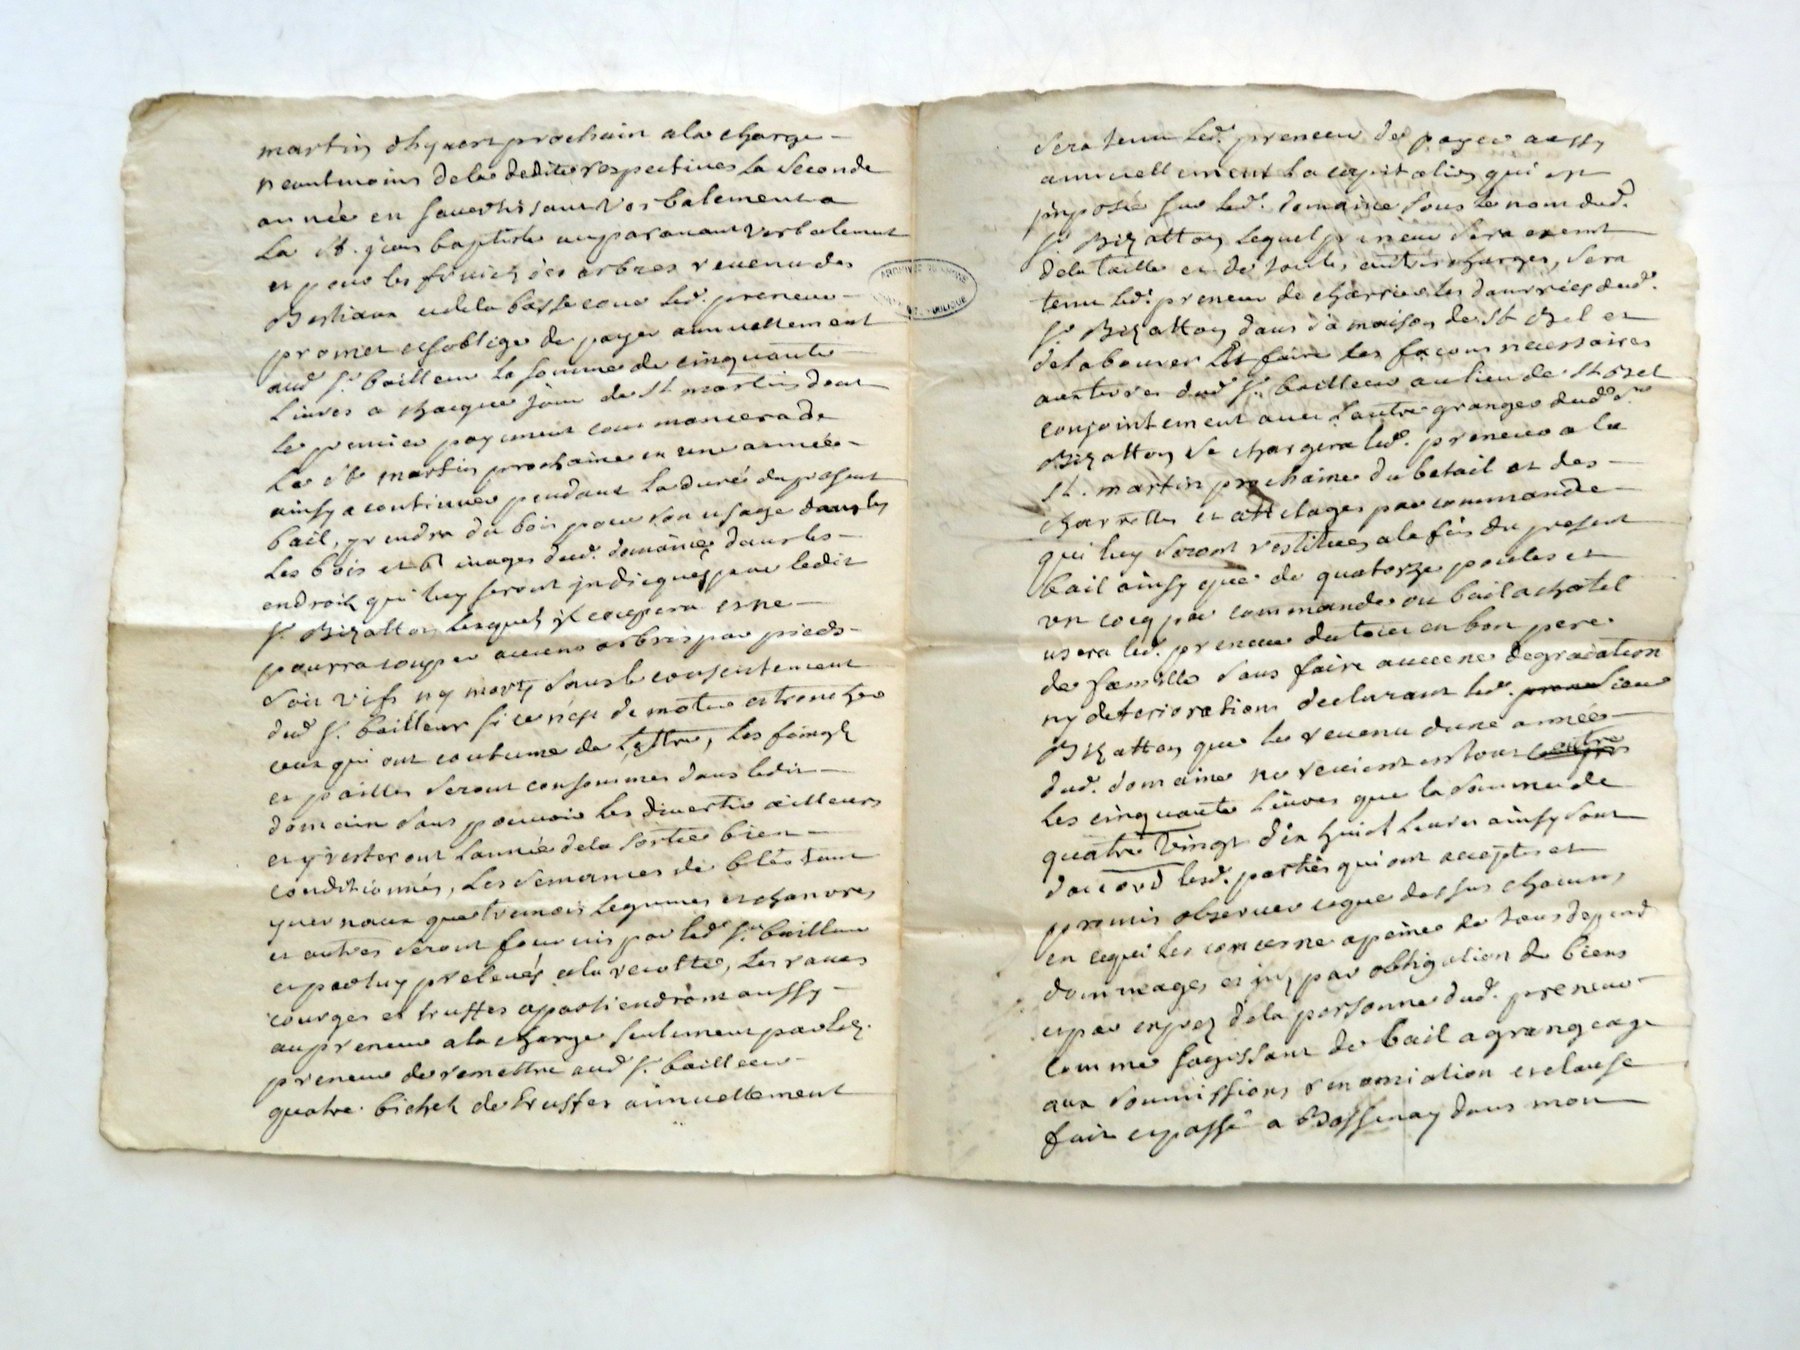 martin dhyvert prochain a la charge
neantmoins de la dedite respectives la seconde
année en savertissant verbalement a
la st. jean baptiste auparavant verbalement
et pour les fruich des arbres revenu des
Bestiaux et de la basse cour led. preneur
promet et soblige de payer annuellement
aud. Sr. bailleur la somme de cinquante
livres a chacque jour de St martin dont
le premier payement commancera de
la St martin prochaine en une année
ainsy a continuer pendant la durée du present
bail, prendra du bois pour son usage dans les
les bois et dud. domaine dans les
endroits qui luy seront jndicqués par ledit
Sr. Bizatton lesquels jl coupera et ne
pourra couper aucuns arbres par pieds
soit vifs ny morts sans le consentement
dud Sr. bailleur si ce nest de mettre et trencher
ceux qui ont coutume de lettre, les foings
et pailles seront consommés dans ledit
domaine sans pouvoir les divertir ailleurs
et y resteront lannée de la sortie bien
conditionnés, les semances de bleds tant
yvernaux que tremois legumes et chanvres
et autres seront fournis par led Sr. bailleur
et par luy prelevés a la recolte, les raves
courges et truffes apartiendront aussy
au preneur a la charge seulement par led.
preneur de remettre aud Sr. bailleur
quatre bichets de truffes annuellement
sera tenu led. preneur de payer aussy
annuellement la capitation qui est
jmposée sur led. domaine sous le nom dud.
Sr. Bizatton lequel preneur sera exemt
de la taille et de toutes autres charges, sera
tenu led. preneur de charrier les danrries dud.
Sr. Bizatton dans sa maison de St Bel et
de labourer et faire les façons necessaires
aux terres dud Sr. bailleur au lieu de St Bel
conjointement avec lautre granger dud. Sr.
Bizatton se chargera led. preneur a la
St. martin prochaine du betail et des
charrettes et attelages par commande
qui luy seront restitués a la fin du present
bail ainsy que de quatorze poules et
un cocq par commande ou bail a chatel
usera led. preneur du tout en bon pere
de famille sans faire aucune degradation
ny deteriorations declarant led. sieur
Bizatton que le revenu dune année
dud. domaine ne revient en tout
les cinquante livres que la somme de
quatre vingt dix huict livres ainsy sont
daccord lesd. parties qui ont accepté et
promis observer ce que dessus chacun
en ce qui les concerne a peine de tous depend
dommages et jnt par obligation de biens
et par exprez de la personne dud. preneur
comme sagissant de bail a grangeage
aux soumissions renonciation et clause
fait et passé a Bessenay dans mon